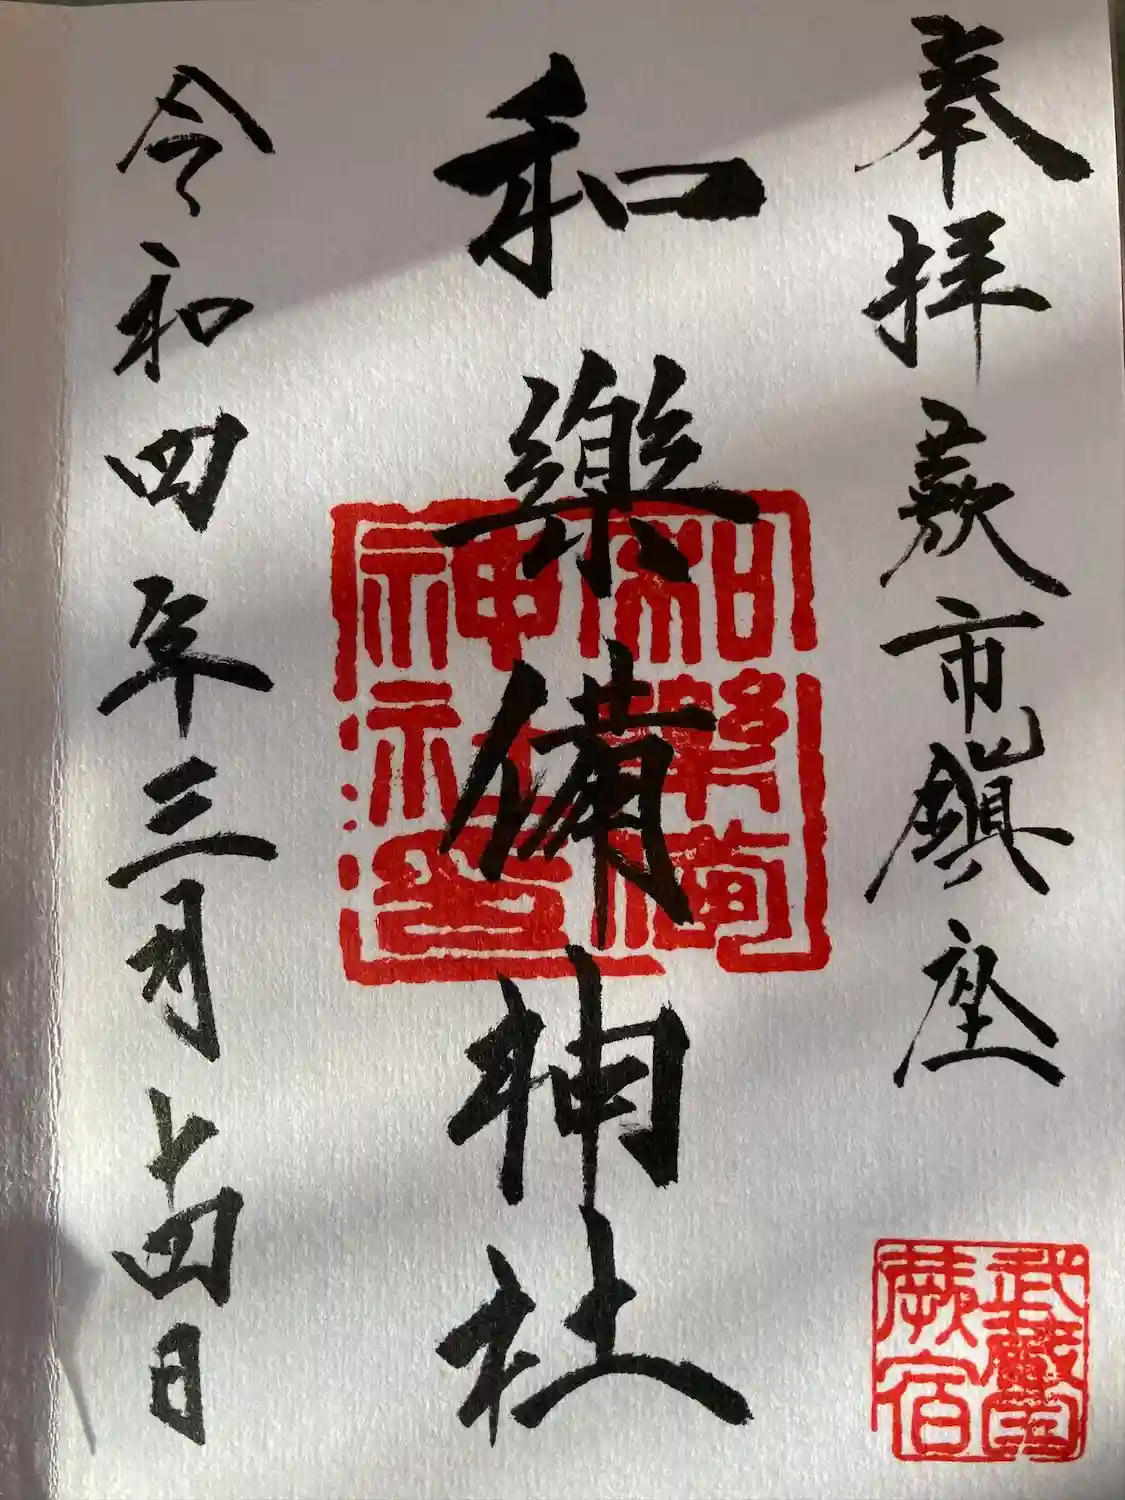 奉拝 蕨市鎮座
和樂備神社
令和四年三月十四日
和樂備
神社印
武蔵国
蕨宿